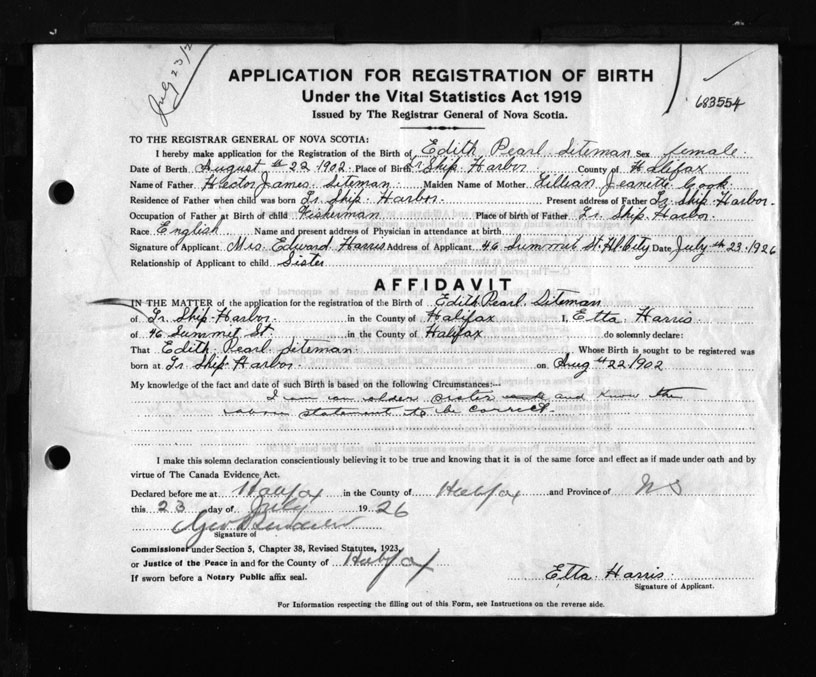 July 23/2
683554
APPLICATION FOR REGISTRATION OF BIRTH
Under the Vital Statistics Act 1919
Issued by The Registrar General of Nova Scotia.
TO THE REGISTRAR GENERAL OF NOVA SCOTIA:
I hereby make application for the Registration of the Birth of Edith Pearl Siteman Sex female.
Date of Birth August 22 1902. Place of Birth Lr Ship Harbor County of Halifax
Name of Father Hector James Siteman Maiden Name of Mother Lillian Jeanette Cook
Residence of Father when child was born Lr. Ship. Harbor. Present address of Father Lr. Ship. Harbor.
Occupation of Father at Birth of child Fisherman Place of birth of Father Lr. Ship. Harbor.
Race English Name and present address of Physician in attendance at birth
Signature of Applicant Mrs. Edward Harris Address of Applicant 46 Summit St. City Date July th 23. 1926
Relationship of Applicant to child Sister
AFFIDAVIT
IN THE MATTER of the application for the registration of the Birth of Edith Pearl. Siteman
of Lr. Ship. Harbor. in the County of Halifax I, Etta Harris
of 46 Summit St in the County of Halifax do solemnly declare:
That Edith Pearl Siteman Whose Birth is sought to be registered was
born at Lr. Ship Harbor. on Aug 22 1902
My knowledge of the fact and date of such Birth is based on the following Circumstances:—
I am an older sister and know the
above statement to be correct.
I make this solemn declaration conscientiously believing it to be true and knowing that it is of the same force and effect as if made under oath and by
virtue of The Canada Evidence Act.
Declared before me at Halifax in the County of Halifax and Province of NS
this 23 day of July 1926
Signature of
Commissioner under Section 5, Chapter 38, Revised Statutes, 1923,
or Justice of the Peace in and for the County of Halifax
If sworn before a Notary Public affix seal.
Etta Harris
Signature of Applicant.
For Information respecting the filling out of this Form, see Instructions on the reverse side.